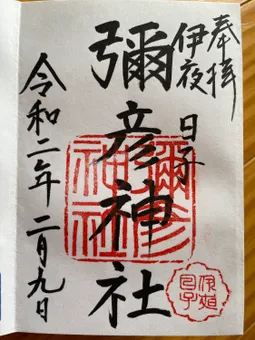 奉拝
伊夜
日子
彌彦神社
令和二年二月九日
彌彦
神社